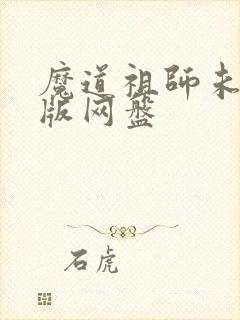 魔道祖師未
版网盘
石虎